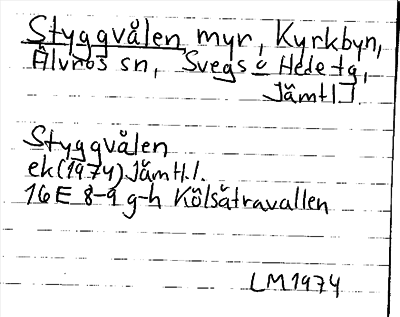 Styggvålen myr, Kyrkbyn,
Älvros sn, Svegs o Hede tg,
Jämtl.
Styggvålen
ek (1974) Jämtl.
16E 8-9 g-h Kölsätravallen
LM 1974